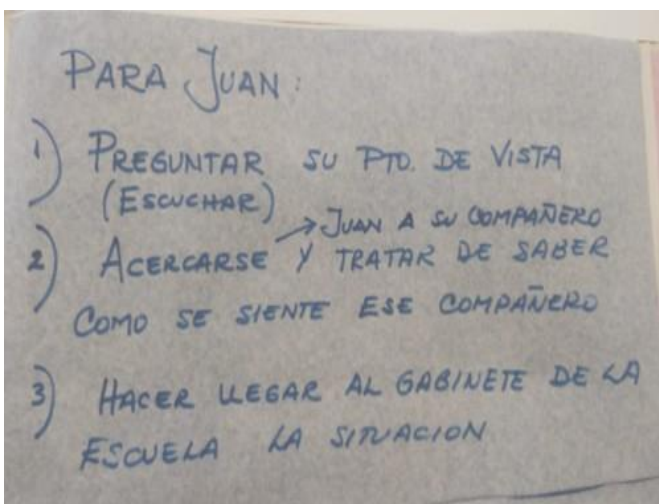 PARA JUAN:
1) PREGUNTAR SU PTO. DE VISTA
(ESCUCHAR)
→ JUAN A SU COMPAÑERO
2) ACERCARSE Y TRATAR DE SABER
COMO SE SIENTE ESE COMPAÑERO
3) HACER LLEGAR AL GABINETE DE LA
ESCUELA LA SITUACION